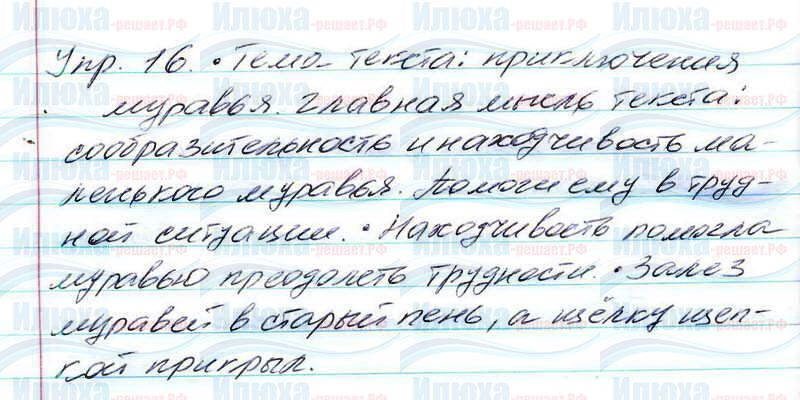 Упр. 16. • Тема текста: приключения
муравья. Главная мысль текста:
сообразительность и находчивость ма-
ленького муравья. Помогли ему в труд-
ной ситуации. • Находчивость помогла
муравью преодолеть трудности. • Залез
муравей в старый пень, а щёлку щеп-
кой прикрыл.
Илюха-решает.РФ